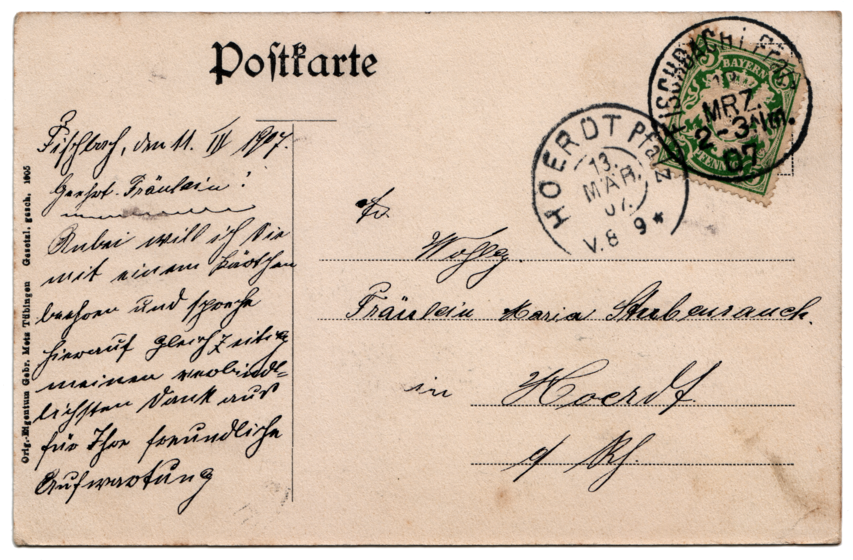 Postkarte
Fischbach, den 11. III 1907.
Geehrt. Fräulein!
Anbei will ich Sie
mit einem Kärtchen
beehren und spreche
hierauf gleichzeitig
meinen verbind-
lichsten Dank aus
für Ihre freundliche
Aufwartung
Orig.-Eigentum Gebr. Metz Tübingen Gesetzl. gesch. 1905
BAYERN
PFENNIG
FISCHBACH i. Pfalz
MRZ.
2-3 Nm.
07
HOERDT Pfalz
13.
MAR.
07.
V. 8 9 *
Wohlg.
Fräulein Maria Stubenrauch.
in Hoerdt
a/ Rh.